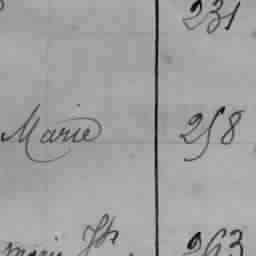 231
Marie 258
marie Jh 263